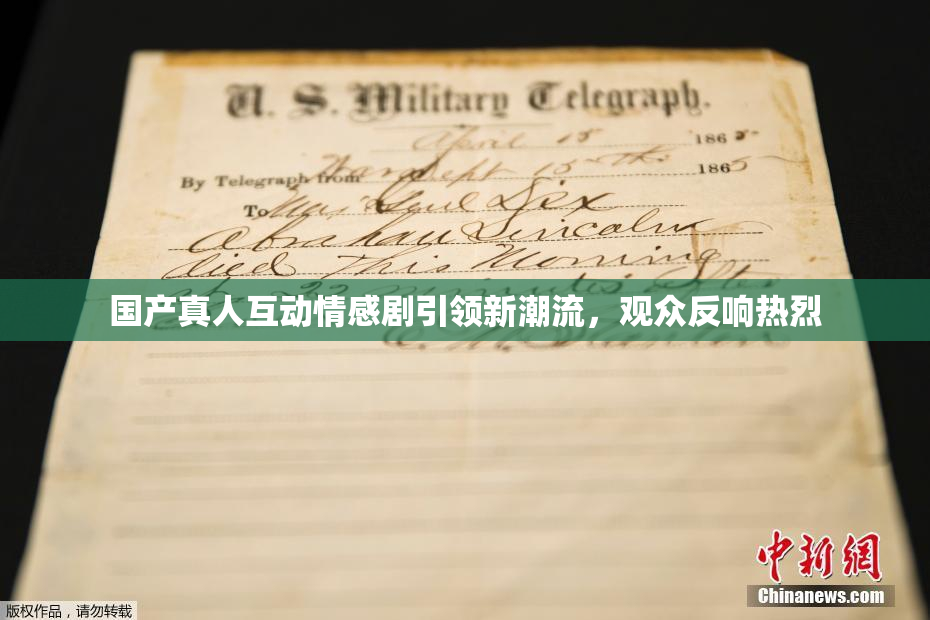 U. S. Military Telegraph.
April 15 1865
By Telegraph from War Dept 15th 1865
To Maj Genl Dix
Abraham Lincoln
died This Morning
at 22 minutes after
国产真人互动情感剧引领新潮流，观众反响热烈
中新網
Chinanews.com
版权作品，请勿转载